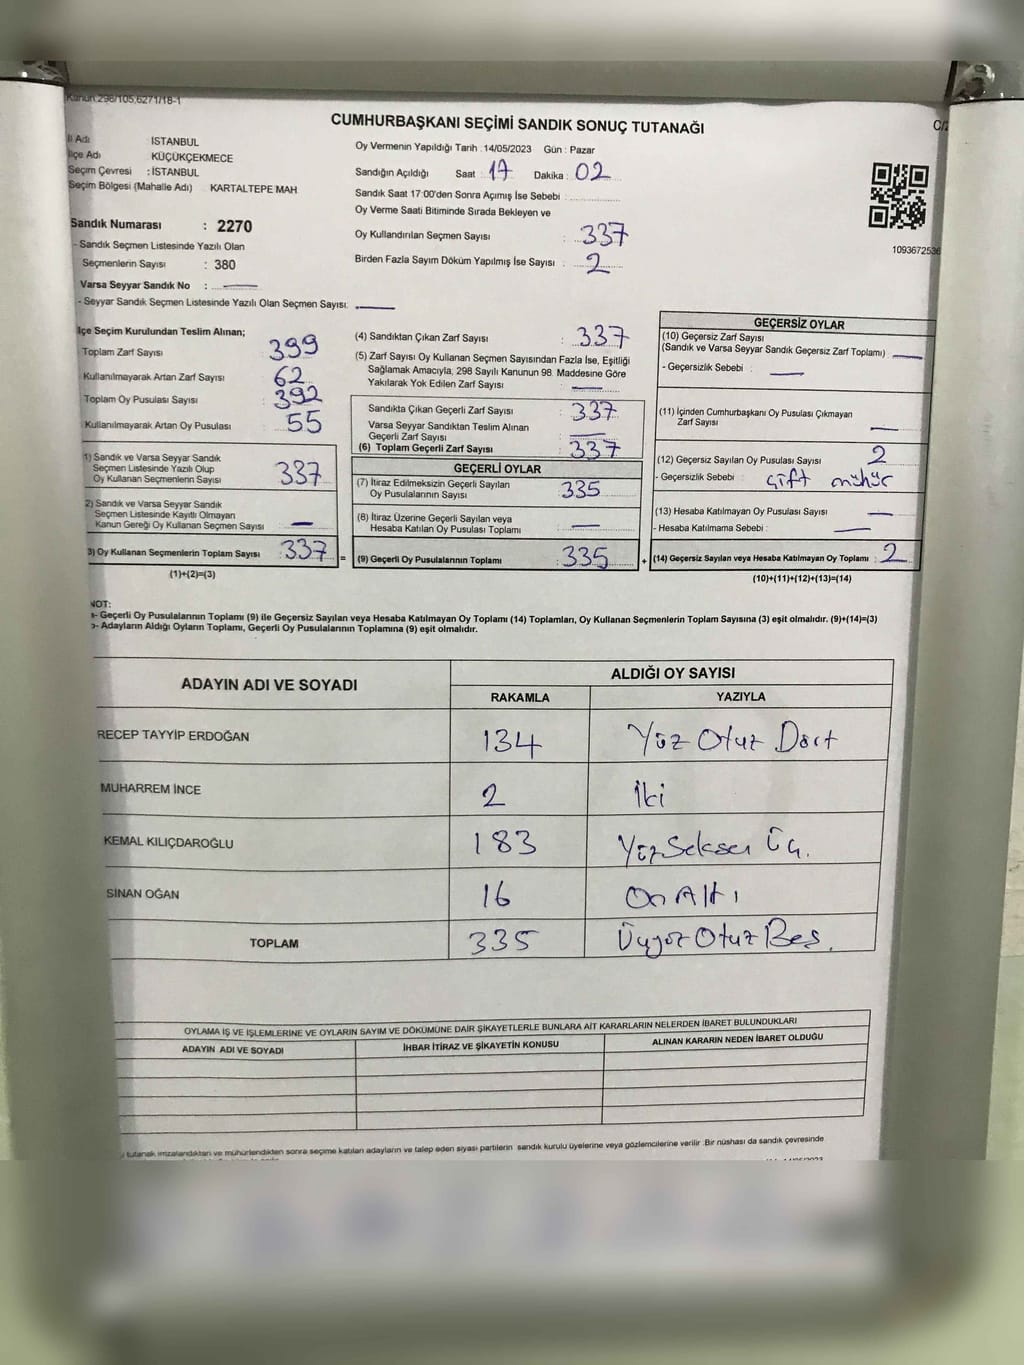 Kanun 298/105,6271/18-1
CUMHURBAŞKANI SEÇİMİ SANDIK SONUÇ TUTANAĞI
İl Adı : İSTANBUL
İlçe Adı : KÜÇÜKÇEKMECE
Seçim Çevresi : İSTANBUL
Seçim Bölgesi (Mahalle Adı) KARTALTEPE MAH
Sandık Numarası : 2270
- Sandık Seçmen Listesinde Yazılı Olan
Seçmenlerin Sayısı : 380
Varsa Seyyar Sandık No :
- Seyyar Sandık Seçmen Listesinde Yazılı Olan Seçmen Sayısı:
Oy Vermenin Yapıldığı Tarih :14/05/2023 Gün : Pazar
Sandığın Açıldığı Saat : 17 Dakika : 02
Sandık Saat 17:00'den Sonra Açımış İse Sebebi :
Oy Verme Saati Bitiminde Sırada Bekleyen ve
Oy Kullandırılan Seçmen Sayısı : 337
Birden Fazla Sayım Döküm Yapılmış İse Sayısı : 2
1093672536
İlçe Seçim Kurulundan Teslim Alınan;
Toplam Zarf Sayısı : 399
Kullanılmayarak Artan Zarf Sayısı : 62
Toplam Oy Pusulası Sayısı : 392
Kullanılmayarak Artan Oy Pusulası : 55
1) Sandık ve Varsa Seyyar Sandık
Seçmen Listesinde Yazılı Olup
Oy Kullanan Seçmenlerin Sayısı : 337
2) Sandık ve Varsa Seyyar Sandık
Seçmen Listesinde Kayıtlı Olmayan
Kanun Gereği Oy Kullanan Seçmen Sayısı :
3) Oy Kullanan Seçmenlerin Toplam Sayısı : 337 =
(1)+(2)=(3)
(4) Sandıktan Çıkan Zarf Sayısı : 337
(5) Zarf Sayısı Oy Kullanan Seçmen Sayısından Fazla İse, Eşitliği
Sağlamak Amacıyla, 298 Sayılı Kanunun 98. Maddesine Göre
Yakılarak Yok Edilen Zarf Sayısı :
Sandıkta Çıkan Geçerli Zarf Sayısı : 337
Varsa Seyyar Sandıktan Teslim Alınan
Geçerli Zarf Sayısı :
(6) Toplam Geçerli Zarf Sayısı : 337
GEÇERLİ OYLAR
(7) İtiraz Edilmeksizin Geçerli Sayılan
Oy Pusulalarının Sayısı : 335
(8) İtiraz Üzerine Geçerli Sayılan veya
Hesaba Katılan Oy Pusulası Toplamı :
(9) Geçerli Oy Pusulalarının Toplamı : 335 +
GEÇERSİZ OYLAR
(10) Geçersiz Zarf Sayısı
(Sandık ve Varsa Seyyar Sandık Geçersiz Zarf Toplamı) :
- Geçersizlik Sebebi :
(11) İçinden Cumhurbaşkanı Oy Pusulası Çıkmayan
Zarf Sayısı :
(12) Geçersiz Sayılan Oy Pusulası Sayısı : 2
- Geçersizlik Sebebi : Çift mühür
(13) Hesaba Katılmayan Oy Pusulası Sayısı :
- Hesaba Katılmama Sebebi :
(14) Geçersiz Sayılan veya Hesaba Katılmayan Oy Toplamı : 2
(10)+(11)+(12)+(13)=(14)
NOT:
a- Geçerli Oy Pusulalarının Toplamı (9) ile Geçersiz Sayılan veya Hesaba Katılmayan Oy Toplamı (14) Toplamları, Oy Kullanan Seçmenlerin Toplam Sayısına (3) eşit olmalıdır. (9)+(14)=(3)
b- Adayların Aldığı Oyların Toplamı, Geçerli Oy Pusulalarının Toplamına (9) eşit olmalıdır.
ADAYIN ADI VE SOYADI ALDIĞI OY SAYISI
RAKAMLA YAZIYLA
RECEP TAYYİP ERDOĞAN 134 Yüz Otuz Dört
MUHARREM İNCE 2 İki
KEMAL KILIÇDAROĞLU 183 Yüz Seksen Üç.
SİNAN OĞAN 16 On Altı
TOPLAM 335 Üçyüz Otuz Beş.
OYLAMA İŞ VE İŞLEMLERİNE VE OYLARIN SAYIM VE DÖKÜMÜNE DAİR ŞİKAYETLERLE BUNLARA AİT KARARLARIN NELERDEN İBARET BULUNDUKLARI
ADAYIN ADI VE SOYADI İHBAR İTİRAZ VE ŞİKAYETİN KONUSU ALINAN KARARIN NEDEN İBARET OLDUĞU
tutanak imzalandıktan ve mühürlendikten sonra seçime katılan adayların ve talep eden siyasi partilerin sandık kurulu üyelerine veya gözlemcilerine verilir .Bir nüshası da sandık çevresinde